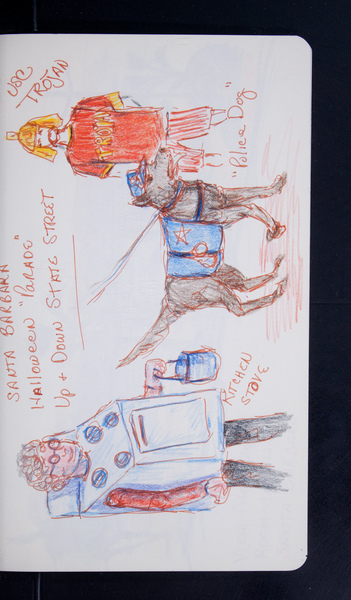 SANTA BARBARA
Halloween "PARADE"
Up + DOWN STATE STREET
USC
TROJAN
TROJAN
"Police Dog"
KITCHEN
STOVE